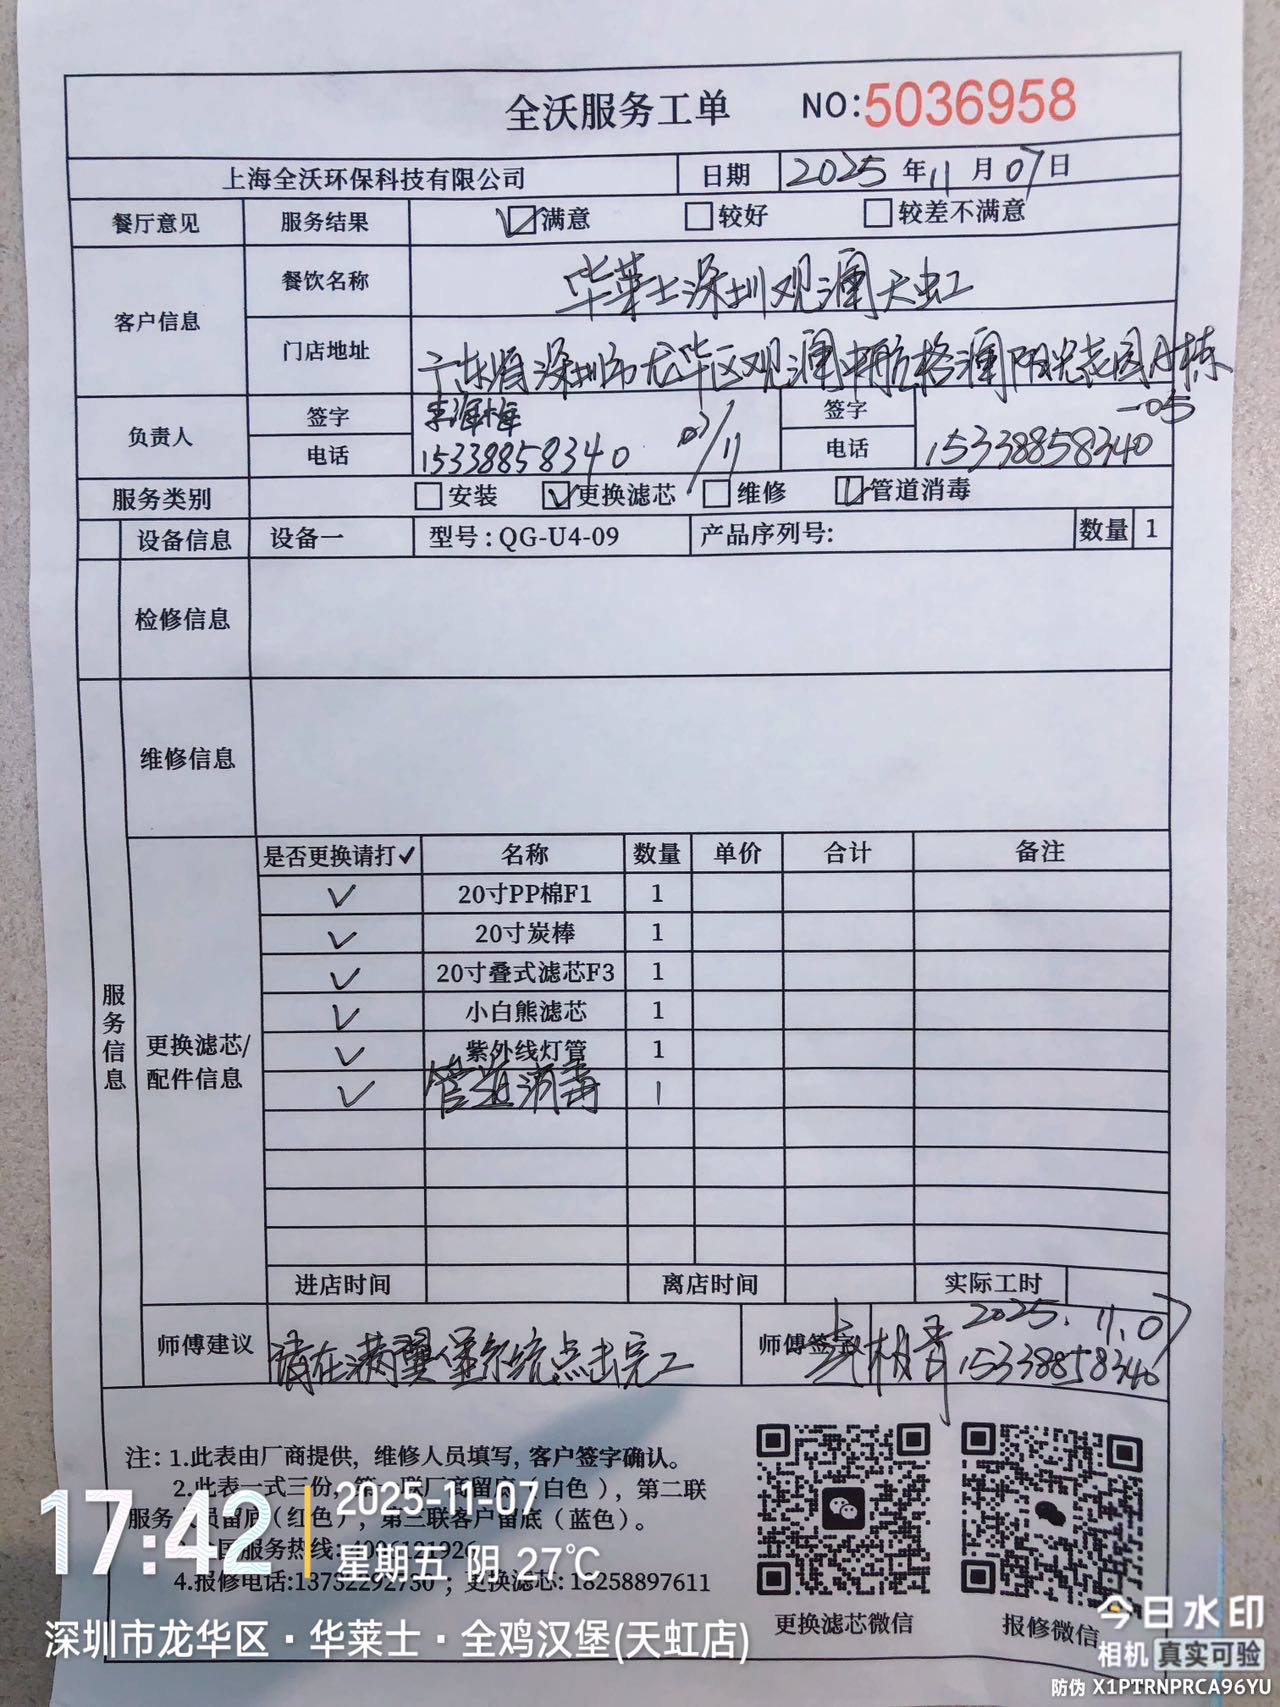 全沃服务工单 NO:5036958
上海全沃环保科技有限公司 日期 2025年11月07日
餐厅意见 服务结果 满意 较好 较差不满意
客户信息 餐饮名称 华莱士深圳观澜天虹
门店地址 广东省深圳市龙华区观澜中航格澜阳光花园A栋
-05
负责人 签字 李海梅 07/11 签字
电话 15338858340 电话 15338858340
服务类别 安装 更换滤芯 维修 管道消毒
设备信息 设备一 型号:QG-U4-09 产品序列号: 数量 1
检修信息
维修信息
服务信息
更换滤芯/
配件信息
是否更换请打✓ 名称 数量 单价 合计 备注
✓ 20寸PP棉F1 1
✓ 20寸炭棒 1
✓ 20寸叠式滤芯F3 1
✓ 小白熊滤芯 1
✓ 紫外线灯管 1
✓ 管道消毒 1
进店时间 离店时间 实际工时
师傅建议 请在满翼 系统点击完工 师傅签字 2025.11.07
15338858340
注：1.此表由厂商提供，维修人员填写,客户签字确认。
2.此表一式三份，第一联厂商留底（白色），第二联
服务人员留底（红色），第三联客户留底（蓝色）。
国服务热线: 4006121926
4.报修电话:13732292730；更换滤芯: 18258897611
更换滤芯微信 报修微信
17:42 2025-11-07
星期五 阴 27℃
深圳市龙华区·华莱士·全鸡汉堡(天虹店)
今日水印
相机 真实可验
防伪 X1PTRNPRCA96YU